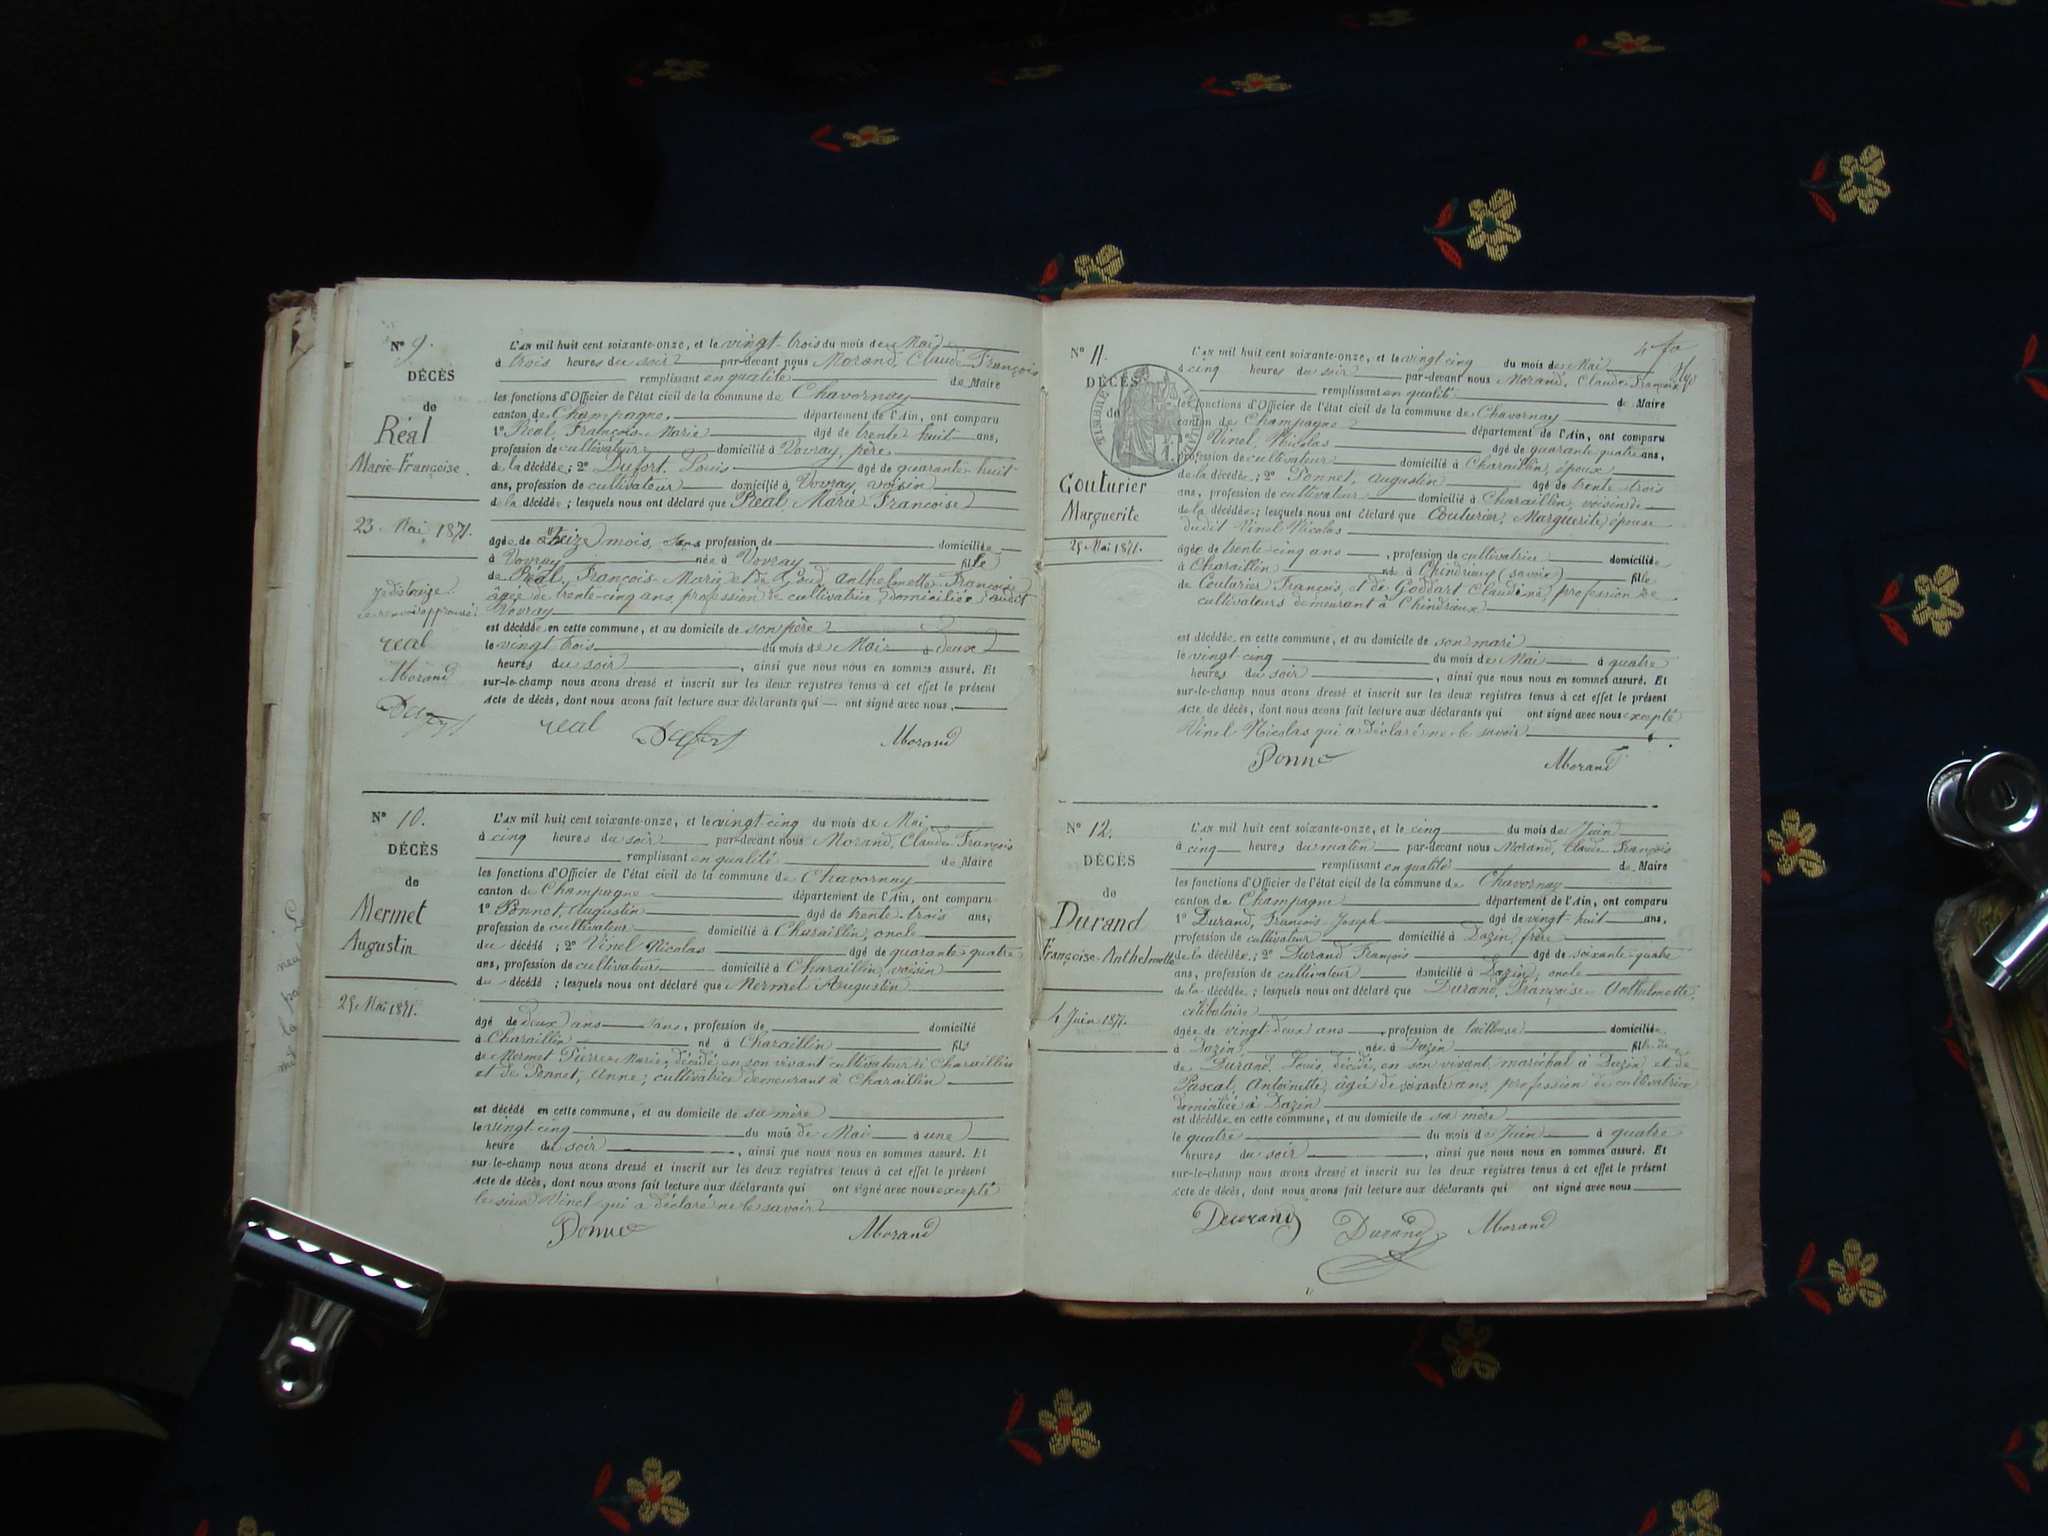 N° 9.
DÉCÈS
de
Réal
Marie-Françoise.
23 Mai 1871.
L'AN mil huit cent soixante-onze, et le vingt-trois du mois de Mai
à trois heures du soir par-devant nous Morand, Claude François
remplissant en qualité de Maire
les fonctions d'Officier de l'état civil de la commune de Chavornay
canton de Champagne, département de l'Ain, ont comparu
1° Réal, François-Marie âgé de trente huit ans,
profession de cultivateur domicilié à Vovray, père
de la décédée; 2° Dufort, Louis âgé de quarante-huit
ans, profession de cultivateur domicilié à Vovray, voisin
de la décédée; lesquels nous ont déclaré que Réal Marie Françoise
âgée de treize mois, sans profession de domiciliée
à Vovray née à Vovray fille
de Réal, François-Marie et de Anthelmette-Françoise
âgée de trente-cinq ans, profession de cultivatrice, domiciliée audit
Vovray
est décédée en cette commune, et au domicile de son père
le vingt trois du mois de Mai à deux
heures du soir, ainsi que nous nous en sommes assuré. Et
sur-le-champ nous avons dressé et inscrit sur les deux registres tenus à cet effet le présent
acte de décès, dont nous avons fait lecture aux déclarants qui ont signé avec nous.
real
Morand
real Morand
N° 10.
DÉCÈS
de
Mermet
Augustin
25 Mai 1871.
L'AN mil huit cent soixante-onze, et le vingt-cinq du mois de Mai
à cinq heures du soir par-devant nous Morand, Claude François
remplissant en qualité de Maire
les fonctions d'Officier de l'état civil de la commune de Chavornay
canton de Champagne département de l'Ain, ont comparu
1° Ponnet, Augustin âgé de trente-trois ans,
profession de cultivateur domicilié à Charaillin, oncle
du décédé; 2° Vinel Nicolas âgé de quarante quatre
ans, profession de cultivateur domicilié à Charaillin, voisin
du décédé; lesquels nous ont déclaré que Mermet Augustin
âgé de deux ans sans, profession de domicilié
à Charaillin né à Charaillin fils
de Mermet Pierre-Marie, décédé, en son vivant cultivateur à Charaillin
et de Ponnet, Anne; cultivatrice demeurant à Charaillin
est décédé en cette commune, et au domicile de sa mère
le vingt-cinq du mois de Mai à une
heure du soir, ainsi que nous nous en sommes assuré. Et
sur-le-champ nous avons dressé et inscrit sur les deux registres tenus à cet effet le présent
acte de décès, dont nous avons fait lecture aux déclarants qui ont signé avec nous excepté
le sieur Vinel qui a déclaré ne le savoir
Ponne Morand
4 fo
N° 11.
DÉCÈS
de
TIMBRE IMPÉRIAL
Couturier
Marguerite
25 Mai 1871.
L'AN mil huit cent soixante-onze, et le vingt cinq du mois de Mai
à cinq heures du soir par-devant nous Morand, Claude François
remplissant en qualité de Maire
les fonctions d'Officier de l'état civil de la commune de Chavornay
canton de Champagne département de l'Ain, ont comparu
Vinel, Nicolas âgé de quarante quatre ans,
profession de cultivateur domicilié à Charaillin, époux
de la décédée; 2° Ponnet, Augustin âgé de trente trois
ans, profession de cultivateur domicilié à Charaillin, voisin de
de la décédée; lesquels nous ont déclaré que Couturier, Marguerite, épouse
dudit Vinel Nicolas
âgée de trente cinq ans, profession de cultivatrice domiciliée
à Charaillin né à Chindrieux (Savoie) fille
de Couturier François, et de Goddart Claudine, profession de
cultivateurs demeurant à Chindrieux
est décédée en cette commune, et au domicile de son mari
le vingt cinq du mois de Mai à quatre
heures du soir, ainsi que nous nous en sommes assuré. Et
sur-le-champ nous avons dressé et inscrit sur les deux registres tenus à cet effet le présent
acte de décès, dont nous avons fait lecture aux déclarants qui ont signé avec nous excepté
Vinel Nicolas qui a déclaré ne le savoir
Ponne Morand
N° 12.
DÉCÈS
de
Durand
Françoise-Anthelmette
4 Juin 1871.
L'AN mil huit cent soixante-onze, et le cinq du mois de Juin
à cinq heures du matin par-devant nous Morand, Claude François
remplissant en qualité de Maire
les fonctions d'Officier de l'état civil de la commune de Chavornay
canton de Champagne département de l'Ain, ont comparu
1° Durand, François-Joseph âgé de vingt-huit ans,
profession de cultivateur domicilié à Dazin, frère
de la décédée; 2° Durand François âgé de soixante-quatre
ans, profession de cultivateur domicilié à Dazin, oncle
de la décédée; lesquels nous ont déclaré que Durand, Françoise-Anthelmette,
célibataire
âgée de vingt-deux ans, profession de tailleuse domiciliée
à Dazin, née à Dazin fille de
de Durand, Louis, décédé, en son vivant maréchal à Dazin, et de
Pascal, Antoinette, âgée de soixante ans, profession de cultivatrice
domiciliée à Dazin
est décédée en cette commune, et au domicile de sa mère
le quatre du mois de Juin à quatre
heures du soir, ainsi que nous nous en sommes assuré. Et
sur-le-champ nous avons dressé et inscrit sur les deux registres tenus à cet effet le présent
acte de décès, dont nous avons fait lecture aux déclarants qui ont signé avec nous
Durand Durand Morand